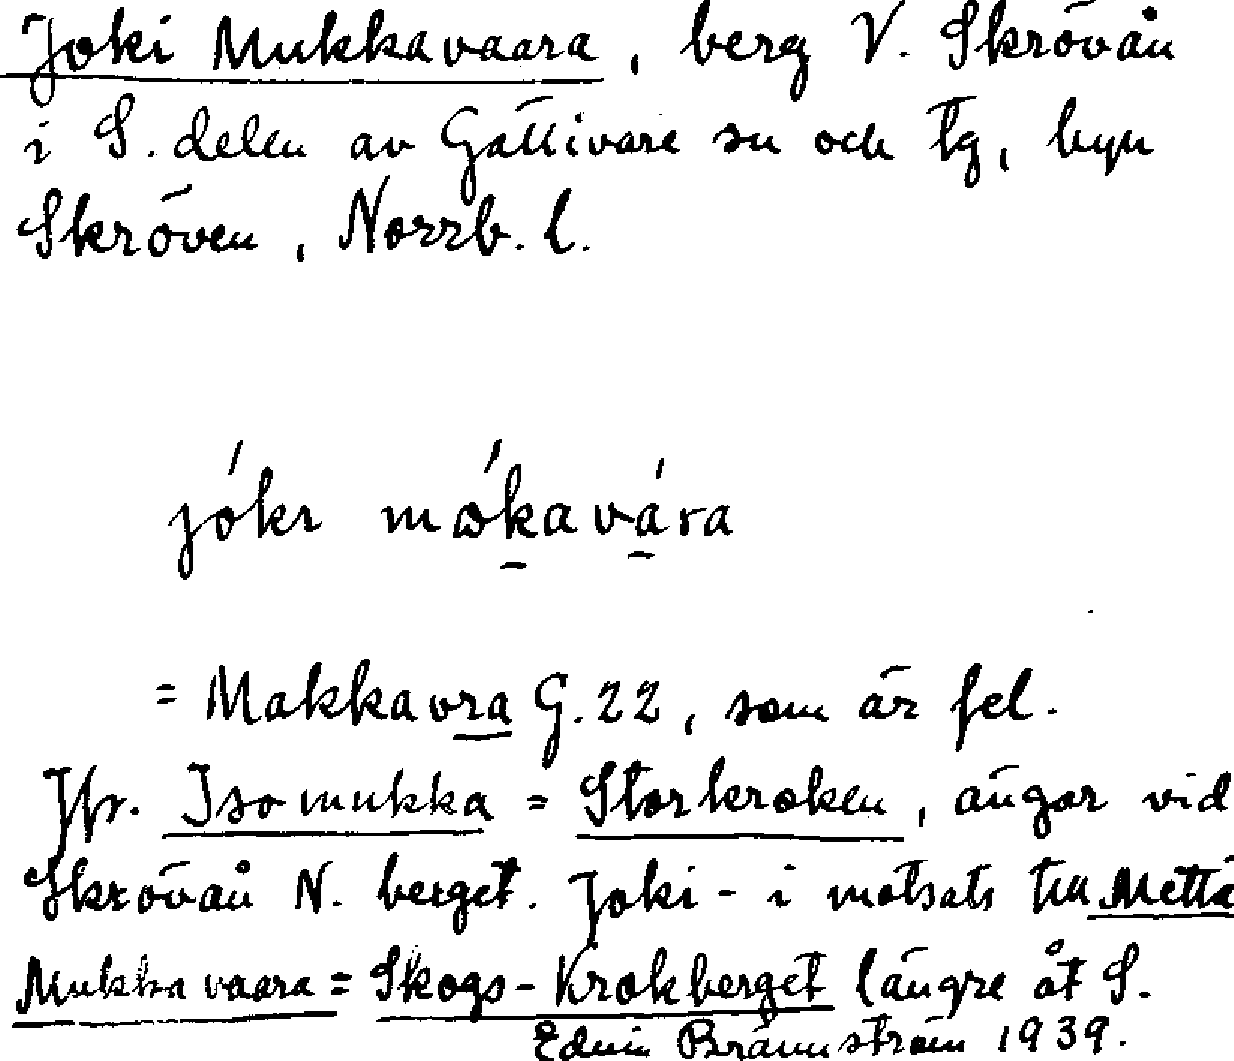 Joki Mukkavaara, berg V. Skrövån
i S. delen av Gällivare sn och tg, byn
Skröven, Norrb. l.
jókı mώkavára
= Makkavra G.22, som är fel.
Jfr. Isomukka = Storkroken, ängar vid
Skrövån N. berget. Joki- i motsats till Mettä
Mukkavaara = Skogs-Krokberget längre åt S.
Edvin Brännström 1939.